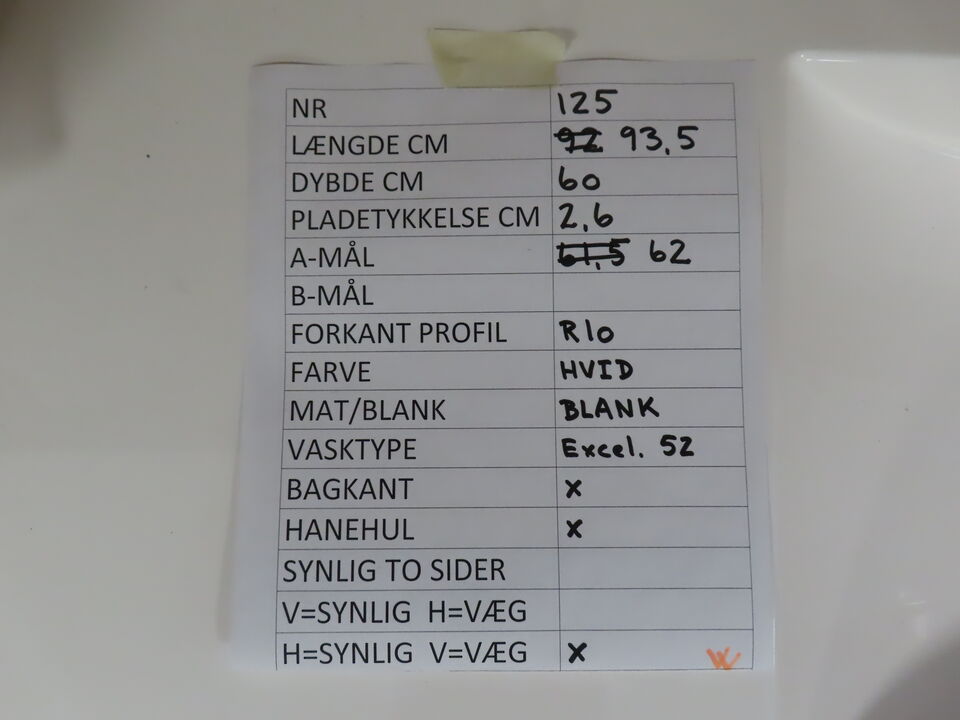 NR 125
LÆNGDE CM 92 93,5
DYBDE CM 60
PLADETYKKELSE CM 2,6
A-MÅL 61,5 62
B-MÅL
FORKANT PROFIL R10
FARVE HVID
MAT/BLANK BLANK
VASKTYPE Excel. 52
BAGKANT x
HANEHUL x
SYNLIG TO SIDER
V=SYNLIG H=VÆG
H=SYNLIG V=VÆG x